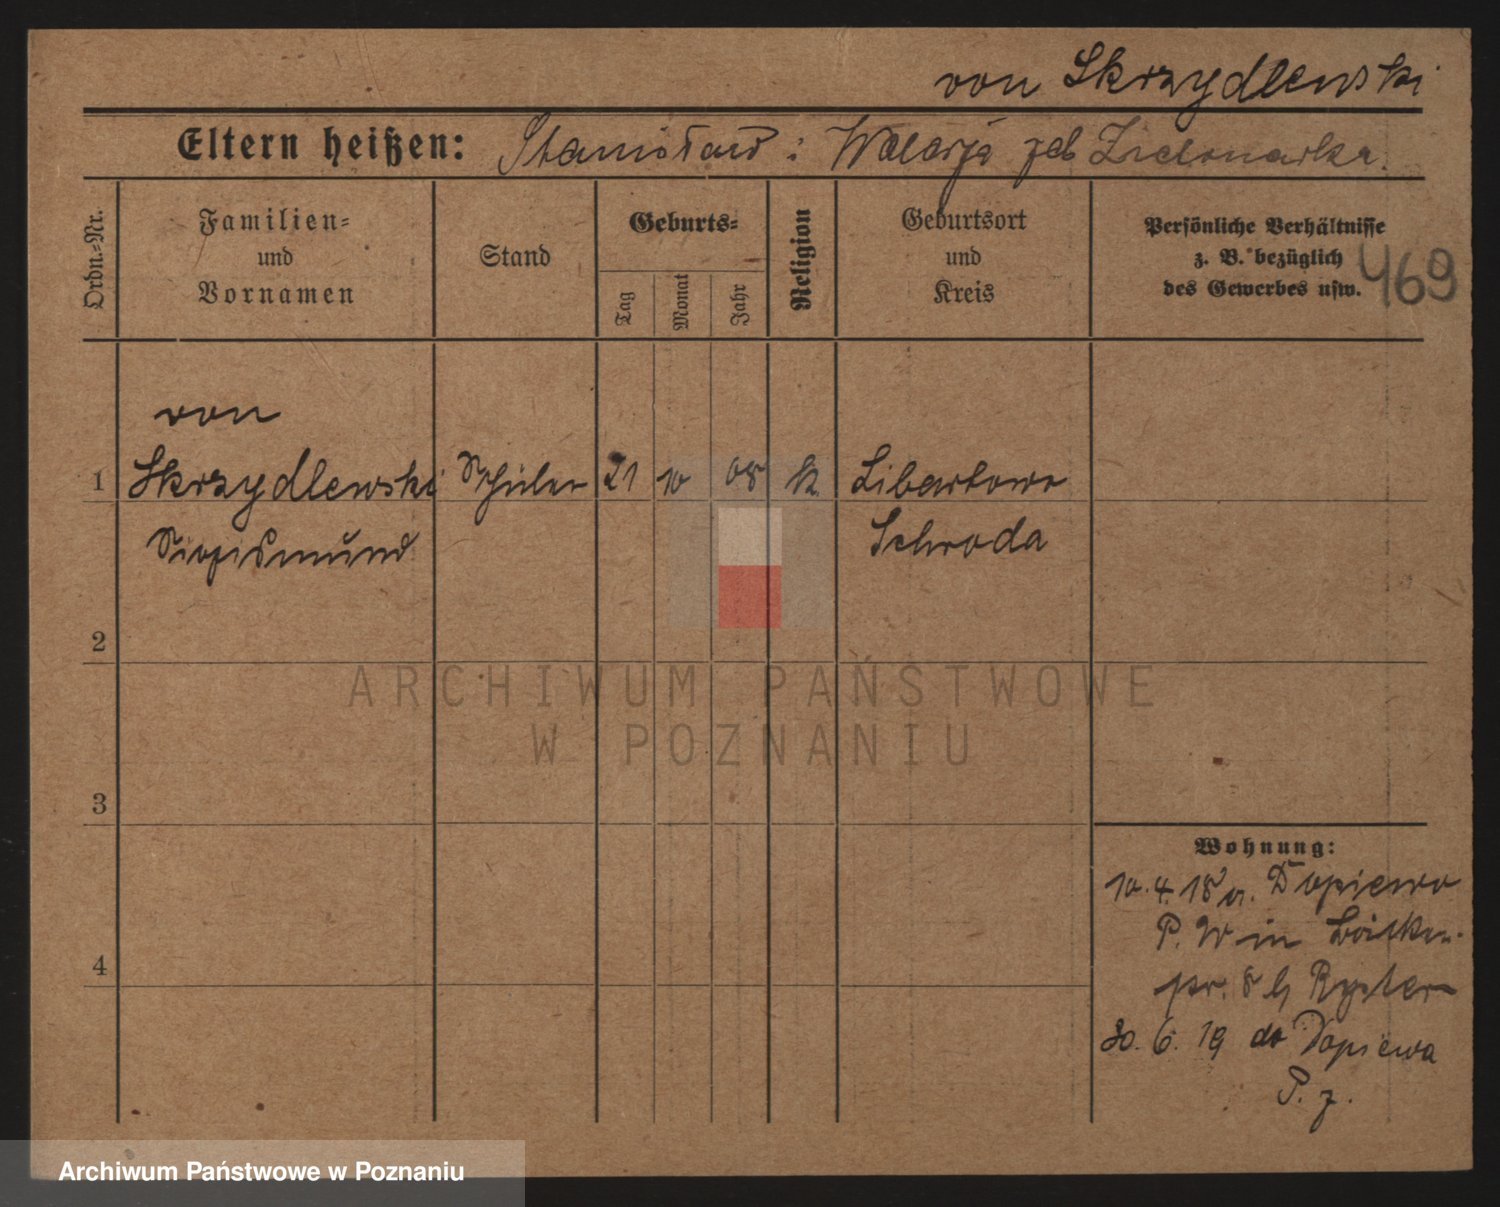 von Skrzydlewski
Eltern heißen: Stanisław i Walerja
Ordn.-Nr.
Familien-
und
Vornamen
Stand
Geburts-
Tag
Monat
Jahr
Religion
Geburtsort
und
Kreis
Persönliche Verhältnisse
z. B. bezüglich
des Gewerbes usw.
469
von
1 Skrzydlewski Schüler 21 10 08 k. Libartowo
Sigismund Schroda
2
ARCHIWUM PAŃSTWOWE
W POZNANIU
3
Wohnung:
10. 4. 18 Dopiewo
P. W in
4
pr. 8 b Ryster
30. 6. 19 do Dopiewa
P. z.
Archiwum Państwowe w Poznaniu